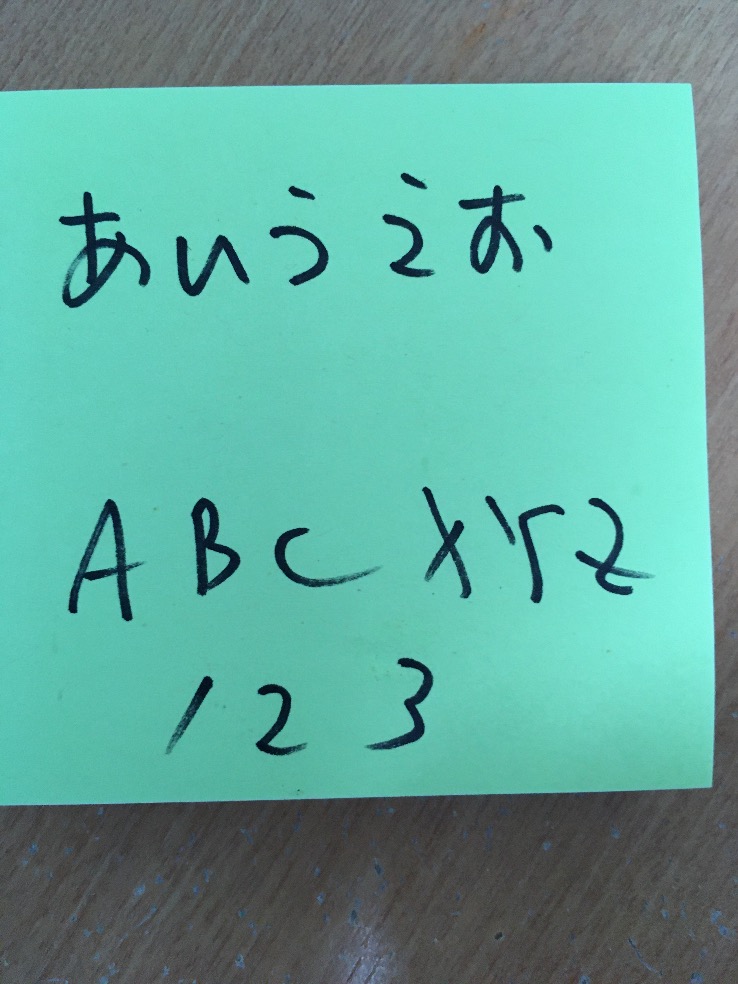 あいうえお
ABC XYZ
123